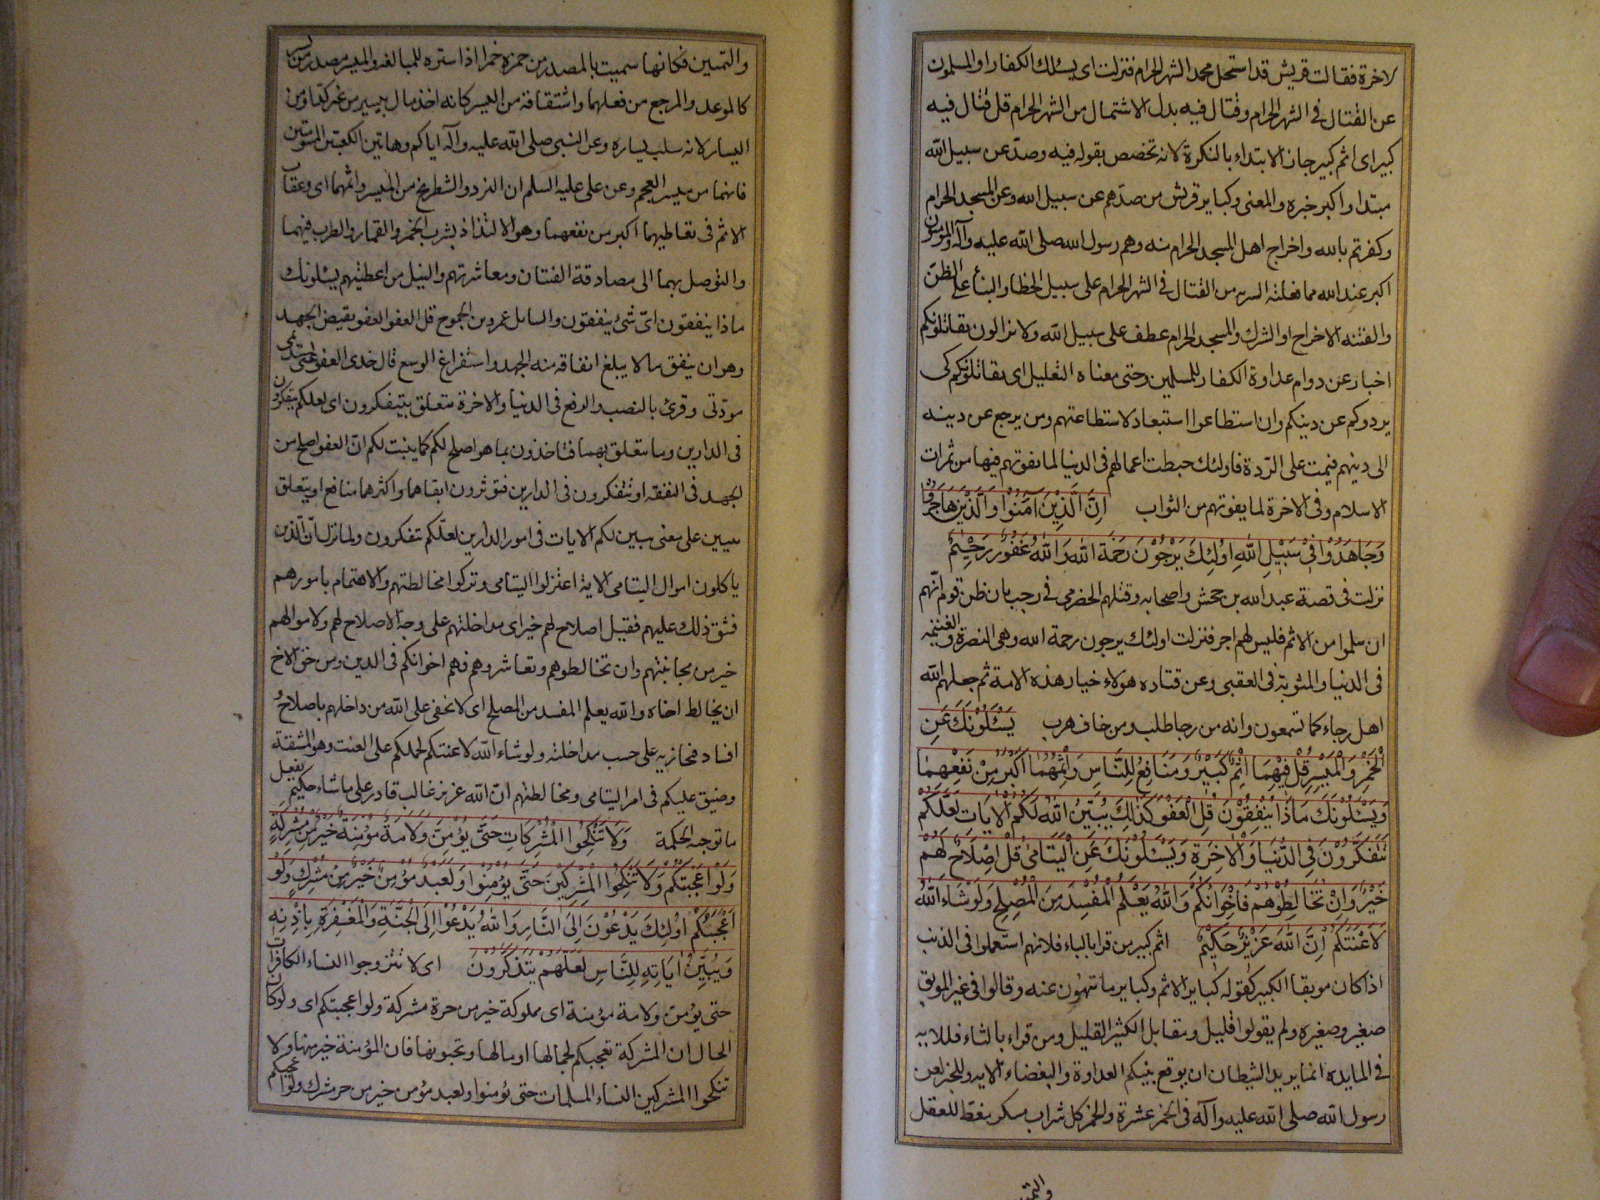 لاخرة فقالت قريش قد استحل محمد الشهر الحرام فنزلت اى يسئلك الكفار او المسلمون
عن القتال فى الشهر الحرام وقتال فيه بدل الاشتمال من الشهر الحرام قل قتال فيه
كبير اى اثم كبير جاز الابتداء بالنكرة لانه تخصص بقوله فيه وصدّ عن سبيل الله
مبتدا واكبر خبره والمعنى وكباير قريش من صدّهم عن سبيل الله وعن المسجد الحرام
وكفرتم بالله واخراج اهل المسجد الحرام منه وهم رسول الله صلى الله عليه وآله والمؤمنون
اكبر عند الله مما فعلته السريه من القتال فى الشهر الحرام على سبيل الخطا والبناء على الظنّ
والفتنه الاخراج او الشرك والمسجد الحرام عطف على سبيل الله ولا يزالون يقاتلونكم
اخبار عن دوام عداوة الكفار للمسلمين وحتى معناه التعليل اى يقاتلونكم كى
يردوكم عن دينكم وان استطاعوا استبعاد لاستطاعتهم ومن يرجع عن دينه
الى دينهم فيمت على الردّة فاولئك حبطت اعمالهم فى الدنيا لما يفوتهم فيها من ثمرات
الاسلام وفى الاخرة لما يفوتهم من الثواب اِنَّ الَّذِيْنَ آمَنُوْا وَالَّذِيْنَ هَاجَرُوْا
وَجَاهَدُوْا فِىْ سَبِيْلِ اللّٰهِ اُولٰئِكَ يَرْجُوْنَ رَحْمَةَ اللّٰهِ وَاللّٰهُ غَفُوْرٌ رَحِيْمٌ
نزلت فى قصة عبد الله بن جحش واصحابه وقتلهم الحضرمى فى رجب بان ظن قوم انّهم
ان سلموا من الاثم فليس لهم اجر فنزلت اولئك يرجون رحمة الله وهى النصرة والغنيمة
فى الدنيا والمثوبة فى العقبى وعن قتاده هولاء خيار هذه الامة ثم جعلهم الله
اهل رجاء كما تسمعون وانه من رجا طلب ومن خاف هرب يَسْئَلُوْنَكَ عَنِ
الْخَمْرِ وَالْمَيْسِرِ قُلْ فِيْهِمَا اِثْمٌ كَبِيْرٌ وَمَنَافِعُ لِلنَّاسِ وَاِثْمُهُمَا اَكْبَرُ مِنْ نَفْعِهِمَا
وَيَسْئَلُوْنَكَ مَاذَا يُنْفِقُوْنَ قُلِ الْعَفْوَ كَذٰلِكَ يُبَيِّنُ اللّٰهُ لَكُمُ الْاٰيَاتِ لَعَلَّكُمْ
تَتَفَكَّرُوْنَ فِى الدُّنْيَا وَالْاٰخِرَةِ وَيَسْئَلُوْنَكَ عَنِ الْيَتَامٰى قُلْ اِصْلَاحٌ لَهُمْ
خَيْرٌ وَاِنْ تُخَالِطُوْهُمْ فَاِخْوَانُكُمْ وَاللّٰهُ يَعْلَمُ الْمُفْسِدَ مِنَ الْمُصْلِحِ وَلَوْ شَاءَ اللّٰهُ
لَاَعْنَتَكُمْ اِنَّ اللّٰهَ عَزِيْزٌ حَكِيْمٌ اثم كبير من قرا بالباء فلانهم استعملوا فى الذنب
اذا كان موبقا الكبير كقوله كباير الاثم وكباير ما تنهون عنه وقالوا فى غير الموبق
صغير وصغيره ولم يقولوا قليل ومقابل الكثير القليل ومن قراء بالثاء فللايه
فى المايده انما يريد الشيطان ان يوقع بينكم العداوة والبغضاء الايه وللخبر لعن
رسول الله صلى الله عليه وآله فى الخمر عشرة والخمر كل شراب مسكر مغط للعقل
والتمييز
والتميىن فكانها سميت بالمصدر من خمره خمرا اذا ستره للمبالغه والميسر مصدر من يسر
كالموعد والمرجع من فعلهما واشتقاقه من اليسر كانه اخذ مال بيسير من غير كدّ او من
اليسار لانه سلب يساره وعن النبى صلى الله عليه وآله اياكم وهاتين الكعبتين المشؤمتين
فانهما من ميسر العجم وعن على عليه السلم ان النرد والشطرنج من الميسر واثمهما اى وعقاب
الاثم فى تعاطيهما اكبر من نفعهما وهو الالتذاذ بشرب الخمر والقمار والطرب فيهما
والتوصل بهما الى مصادقة الفتيان ومعاشرتهم والنيل من اعطيتهم يسئلونك
ماذا ينفقون اىّ شئ ينفقون والسائل عمرو بن الجموح قل العفو العفو نقيض الجهد
وهو ان ينفق ما لا يبلغ انفاقه منه الجهد واستفراغ الوسع قال خذى العفو منى تستديمى
مودّتى وقرئ بالنصب والرفع فى الدنيا والاخرة متعلق بيتفكرون اى لعلكم تتفكرون
فى الدارين وما يتعلق بهما فتاخذون بما هو اصلح لكم كما يبنت لكم انّ العفو اصلح من
الجهد فى النفقه او تتفكرون فى الدارين فتؤثرون ابقاهما واكثرهما منافع او يتعلق
بيبين على معنى يبين لكم الايات فى امور الدارين لعلّكم تتفكرون ولما نزل انّ الذين
ياكلون اموال اليتامى الاية اعتزلوا اليتامى وتركوا مخالطتهم والاهتمام بامورهم
فشق ذلك عليهم فقيل اصلاح لهم خير اى مداخلتهم على وجه الاصلاح لهم ولاموالهم
خير من مجانبتهم وان تخالطوهم وتعاشروهم فهم اخوانكم فى الدين ومن حق الاخ
ان يخالط اخاه والله يعلم المفسد من المصلح اى لا يخفى على الله من داخلهم باصلاح او
افساد فيجازيه على حسب مداخلته ولو شاء الله لاعنتكم لحملكم على العنت وهو المشقة
وضيق عليكم فى امر اليتامى ومخالطتهم انّ الله عزيز غالب قادر على ما شاء حكيم يفعل
ما توجبه الحكمة وَلَا تَنْكِحُوا الْمُشْرِكَاتِ حَتّٰى يُؤْمِنَّ وَلَاَمَةٌ مُؤْمِنَةٌ خَيْرٌ مِنْ مُشْرِكَةٍ
وَلَوْ اَعْجَبَتْكُمْ وَلَا تُنْكِحُوا الْمُشْرِكِيْنَ حَتّٰى يُؤْمِنُوْا وَلَعَبْدٌ مُؤْمِنٌ خَيْرٌ مِنْ مُشْرِكٍ وَلَوْ
اَعْجَبَكُمْ اُولٰئِكَ يَدْعُوْنَ اِلَى النَّارِ وَاللّٰهُ يَدْعُوْا اِلَى الْجَنَّةِ وَالْمَغْفِرَةِ بِاِذْنِهِ
وَيُبَيِّنُ اٰيَاتِهِ لِلنَّاسِ لَعَلَّهُمْ يَتَذَكَّرُوْنَ اى لا تتزوجوا النساء الكافرات
حتى يؤمن ولامة مؤمنة اى مملوكة خير من حرة مشركة ولو اعجبتكم اى ولو كان
الحال ان المشركة تعجبكم لجمالها او مالها وتحبونها فان المؤمنة خير منها ولا
تنكحوا المشركين النساء المسلمات حتى يؤمنوا ولعبد مؤمن خير من حر مشرك ولو اعجبكم